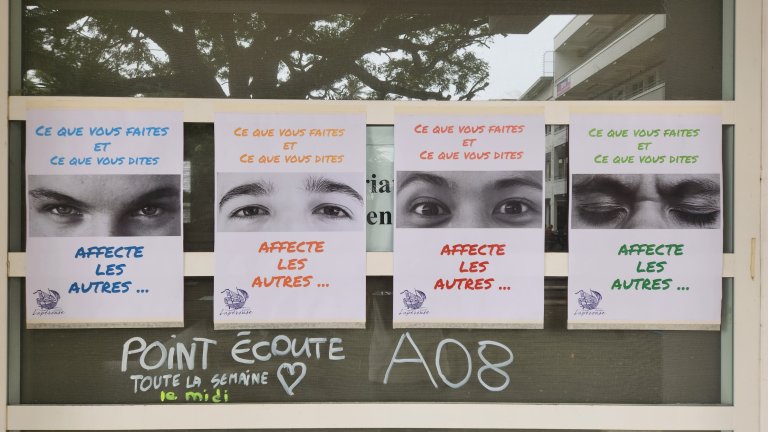 CE QUE VOUS FAITES
ET
CE QUE VOUS DITES
AFFECTE
LES
AUTRES ...
Lapérouse
CE QUE VOUS FAITES
ET
CE QUE VOUS DITES
AFFECTE
LES
AUTRES ...
Lapérouse
CE QUE VOUS FAITES
ET
CE QUE VOUS DITES
AFFECTE
LES
AUTRES ...
Lapérouse
CE QUE VOUS FAITES
ET
CE QUE VOUS DITES
AFFECTE
LES
AUTRES ...
Lapérouse
riat
en
POINT ÉCOUTE
TOUTE LA SEMAINE
le midi
A08